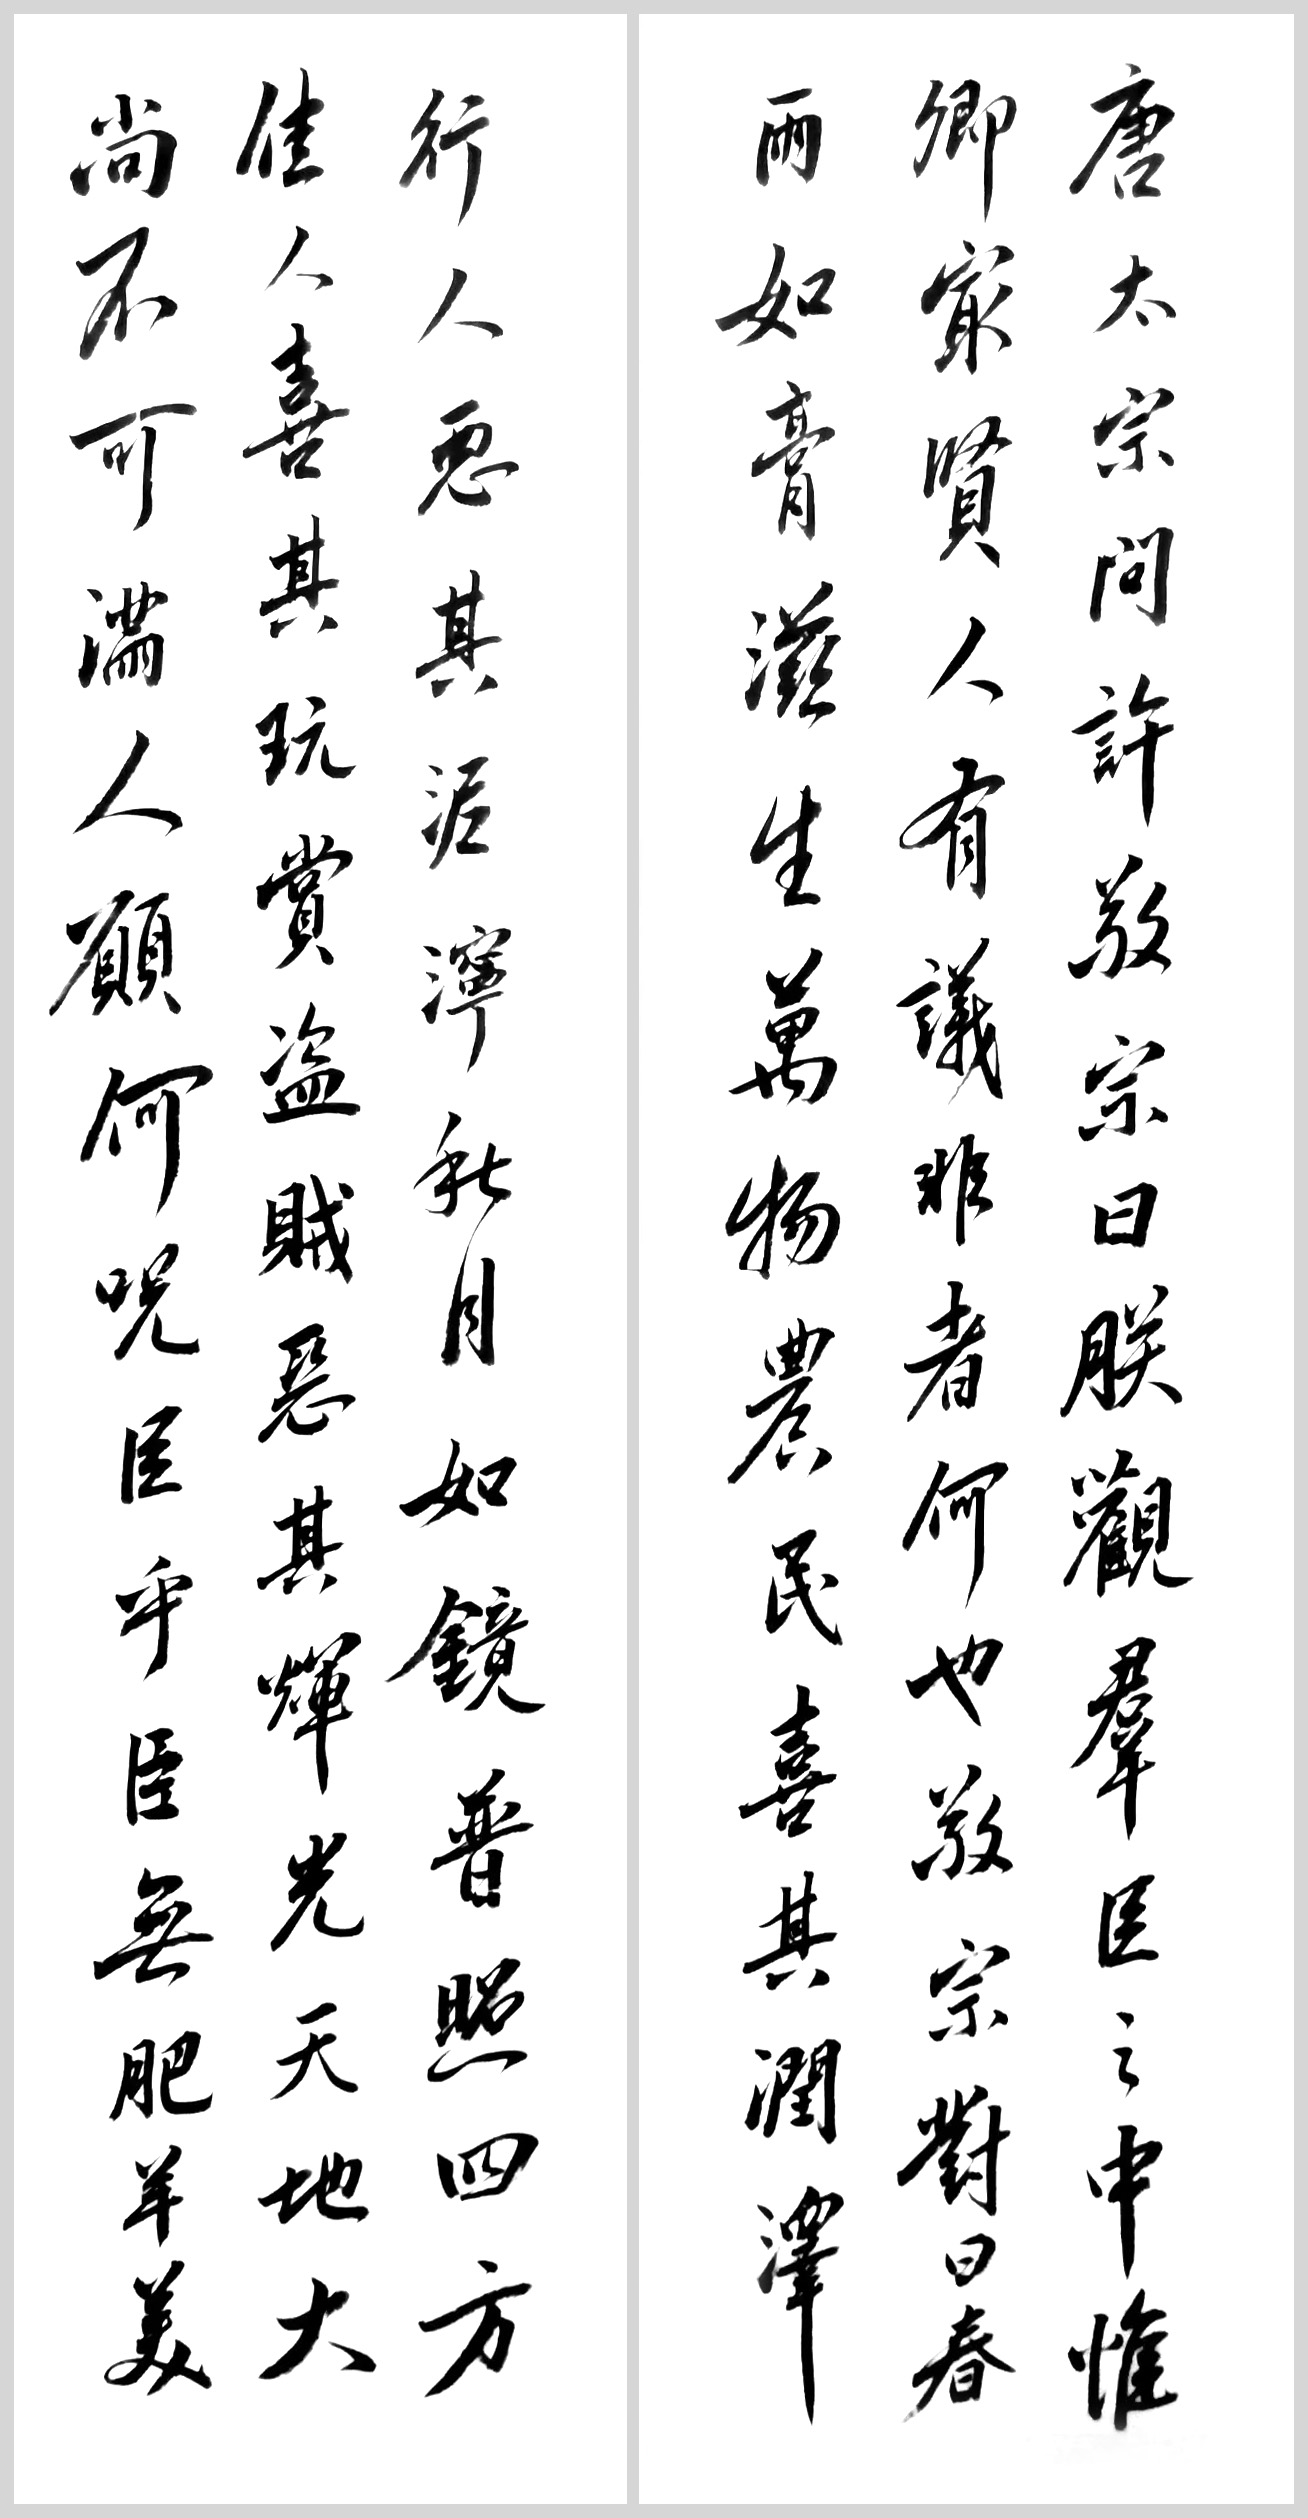 唐太宗問許敬宗曰朕觀羣臣之中惟
卿最賢人有議非者何也敬宗對曰春
雨如膏滋生萬物農民喜其潤澤
行人惡其泥濘秋月如鏡普照四方
佳人喜其玩賞盜賊惡其輝光天地大
尚不可滿人願何況臣乎臣無肥羊美